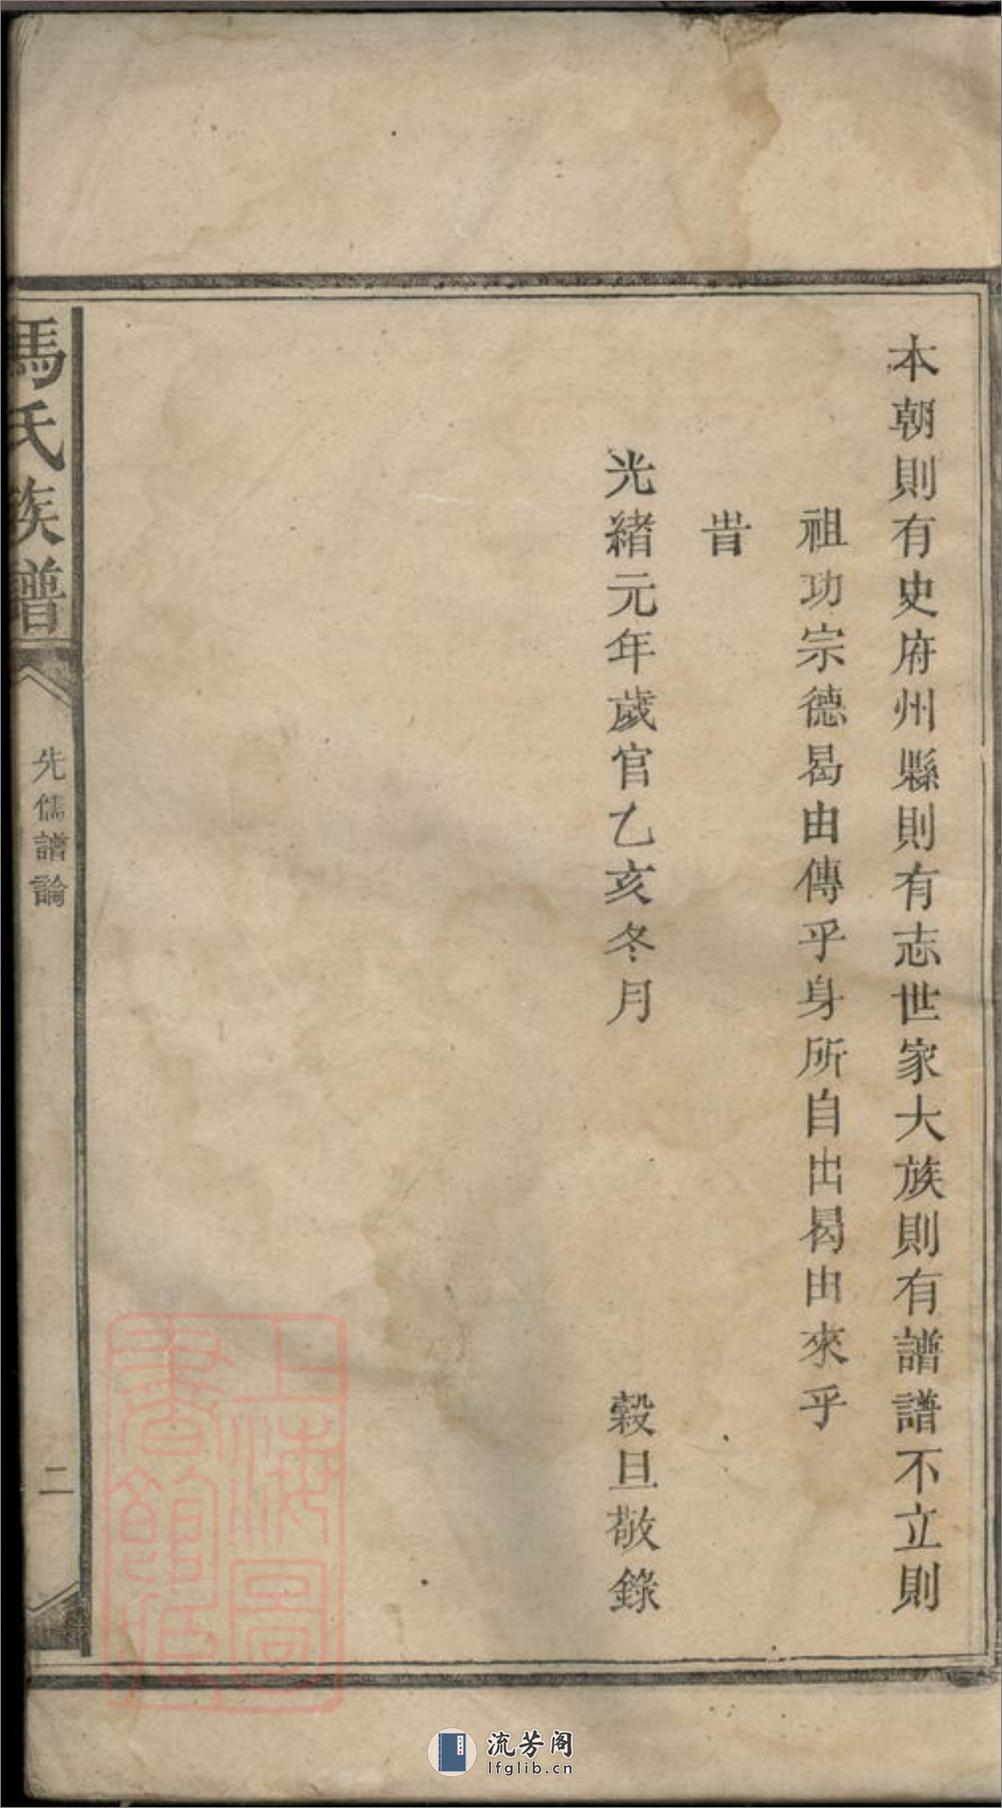 本朝則有史府州縣則有志世家大族則有譜譜不立則
祖功宗德曷由傳乎身所自出曷由來乎
旹
光緒元年歲官乙亥冬月 穀旦敬錄
馮氏族譜
先儒譜論
二
上海圖
書館藏
流芳阁
lfglib.cn